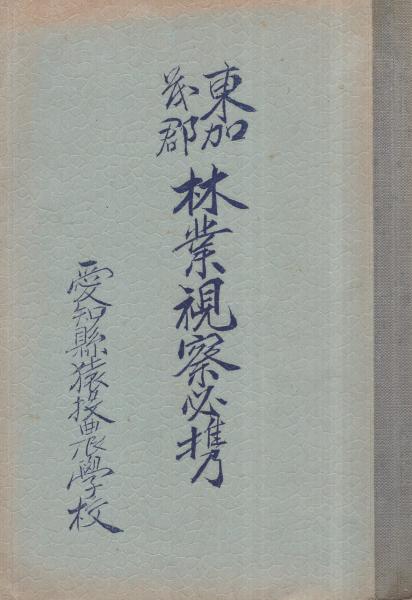 東加
茂郡
林業視察必携
愛知縣猿投農學校